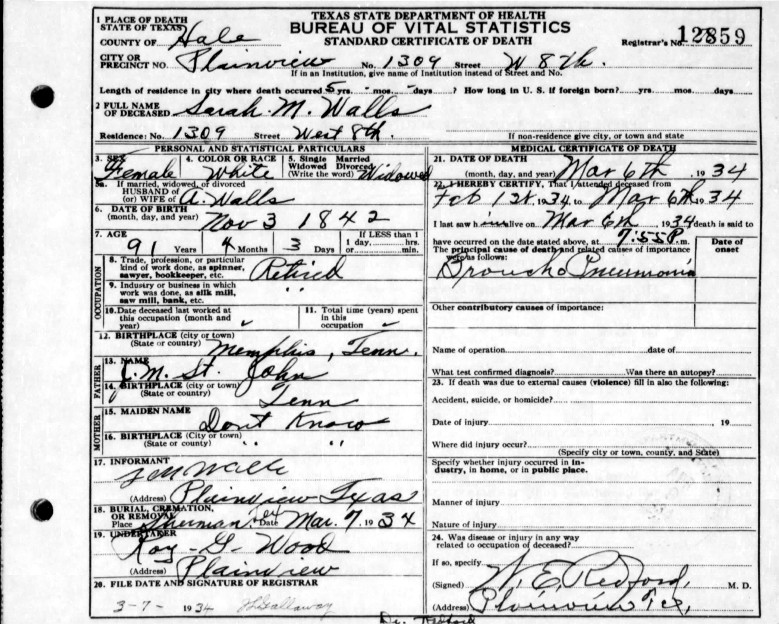 TEXAS STATE DEPARTMENT OF HEALTH
BUREAU OF VITAL STATISTICS
STANDARD CERTIFICATE OF DEATH
Registrar's No. 12859
1 PLACE OF DEATH
STATE OF TEXAS
COUNTY OF Hale
CITY OR
PRECINCT NO. Plainview No. 1309 Street W 8th.
If in an Institution, give name of Institution instead of Street and No.
Length of residence in city where death occurred 5 yrs. " mos. " days ? How long in U. S. if foreign born? yrs. mos. days
2 FULL NAME
OF DECEASED Sarah. M. Walls
Residence: No. 1309 Street West 8th.
If non-residence give city, or town and state
PERSONAL AND STATISTICAL PARTICULARS
3. SEX Female
4. COLOR OR RACE White
5. Single Married
Widowed Divorced
(Write the word) Widowed
5a. If married, widowed, or divorced
HUSBAND OF
(or) WIFE OF A. Walls
6. DATE OF BIRTH
(month, day, and year) Nov 3 1842
7. AGE 91 Years 4 Months 3 Days
If LESS than 1
1 day, hrs.
or min.
OCCUPATION
8. Trade, profession, or particular
kind of work done, as spinner,
sawyer, bookkeeper, etc. Retired
9. Industry or business in which
work was done, as silk mill,
saw mill, bank, etc. " "
10. Date deceased last worked at
this occupation (month and
year) ✓
11. Total time (years) spent
in this
occupation ✓
12. BIRTHPLACE (city or town)
(State or country) Memphis, Tenn.
FATHER
13. NAME
J. M. St. John
14. BIRTHPLACE (city or town)
(State or country) Tenn
MOTHER
15. MAIDEN NAME Dont Know
16. BIRTHPLACE (City or town)
(State or country) " " " "
17. INFORMANT
J M Walls
(Address) Plainview Texas
18. BURIAL, CREMATION,
OR REMOVAL
Place Sherman, Tex Date Mar. 7, 1934
19. UNDERTAKER
Roy-G-Wood
(Address) Plainview
20. FILE DATE AND SIGNATURE OF REGISTRAR
3-7- 1934 Gallaway
MEDICAL CERTIFICATE OF DEATH
21. DATE OF DEATH
(month, day, and year) Mar 6th, 1934
22. I HEREBY CERTIFY, That I attended deceased from
Feb 1st, 1934, to Mar 6th, 1934
I last saw h im alive on Mar 6th 1934 death is said to
have occurred on the date stated above, at 7:55 P. m.
The principal cause of death and related causes of importance
were as follows:
Date of
onset
Broncho Pneumonia
Other contributory causes of importance:
Name of operation date of
What test confirmed diagnosis? Was there an autopsy?
23. If death was due to external causes (violence) fill in also the following:
Accident, suicide, or homicide?
Date of injury 19
Where did injury occur?
(Specify city or town, county, and State)
Specify whether injury occurred in in-
dustry, in home, or in public place.
Manner of injury
Nature of injury
24. Was disease or injury in any way
related to occupation of deceased?
If so, specify
(Signed) W. E. Redford, M. D.
(Address) Plainview Tex,
Dr. Redford